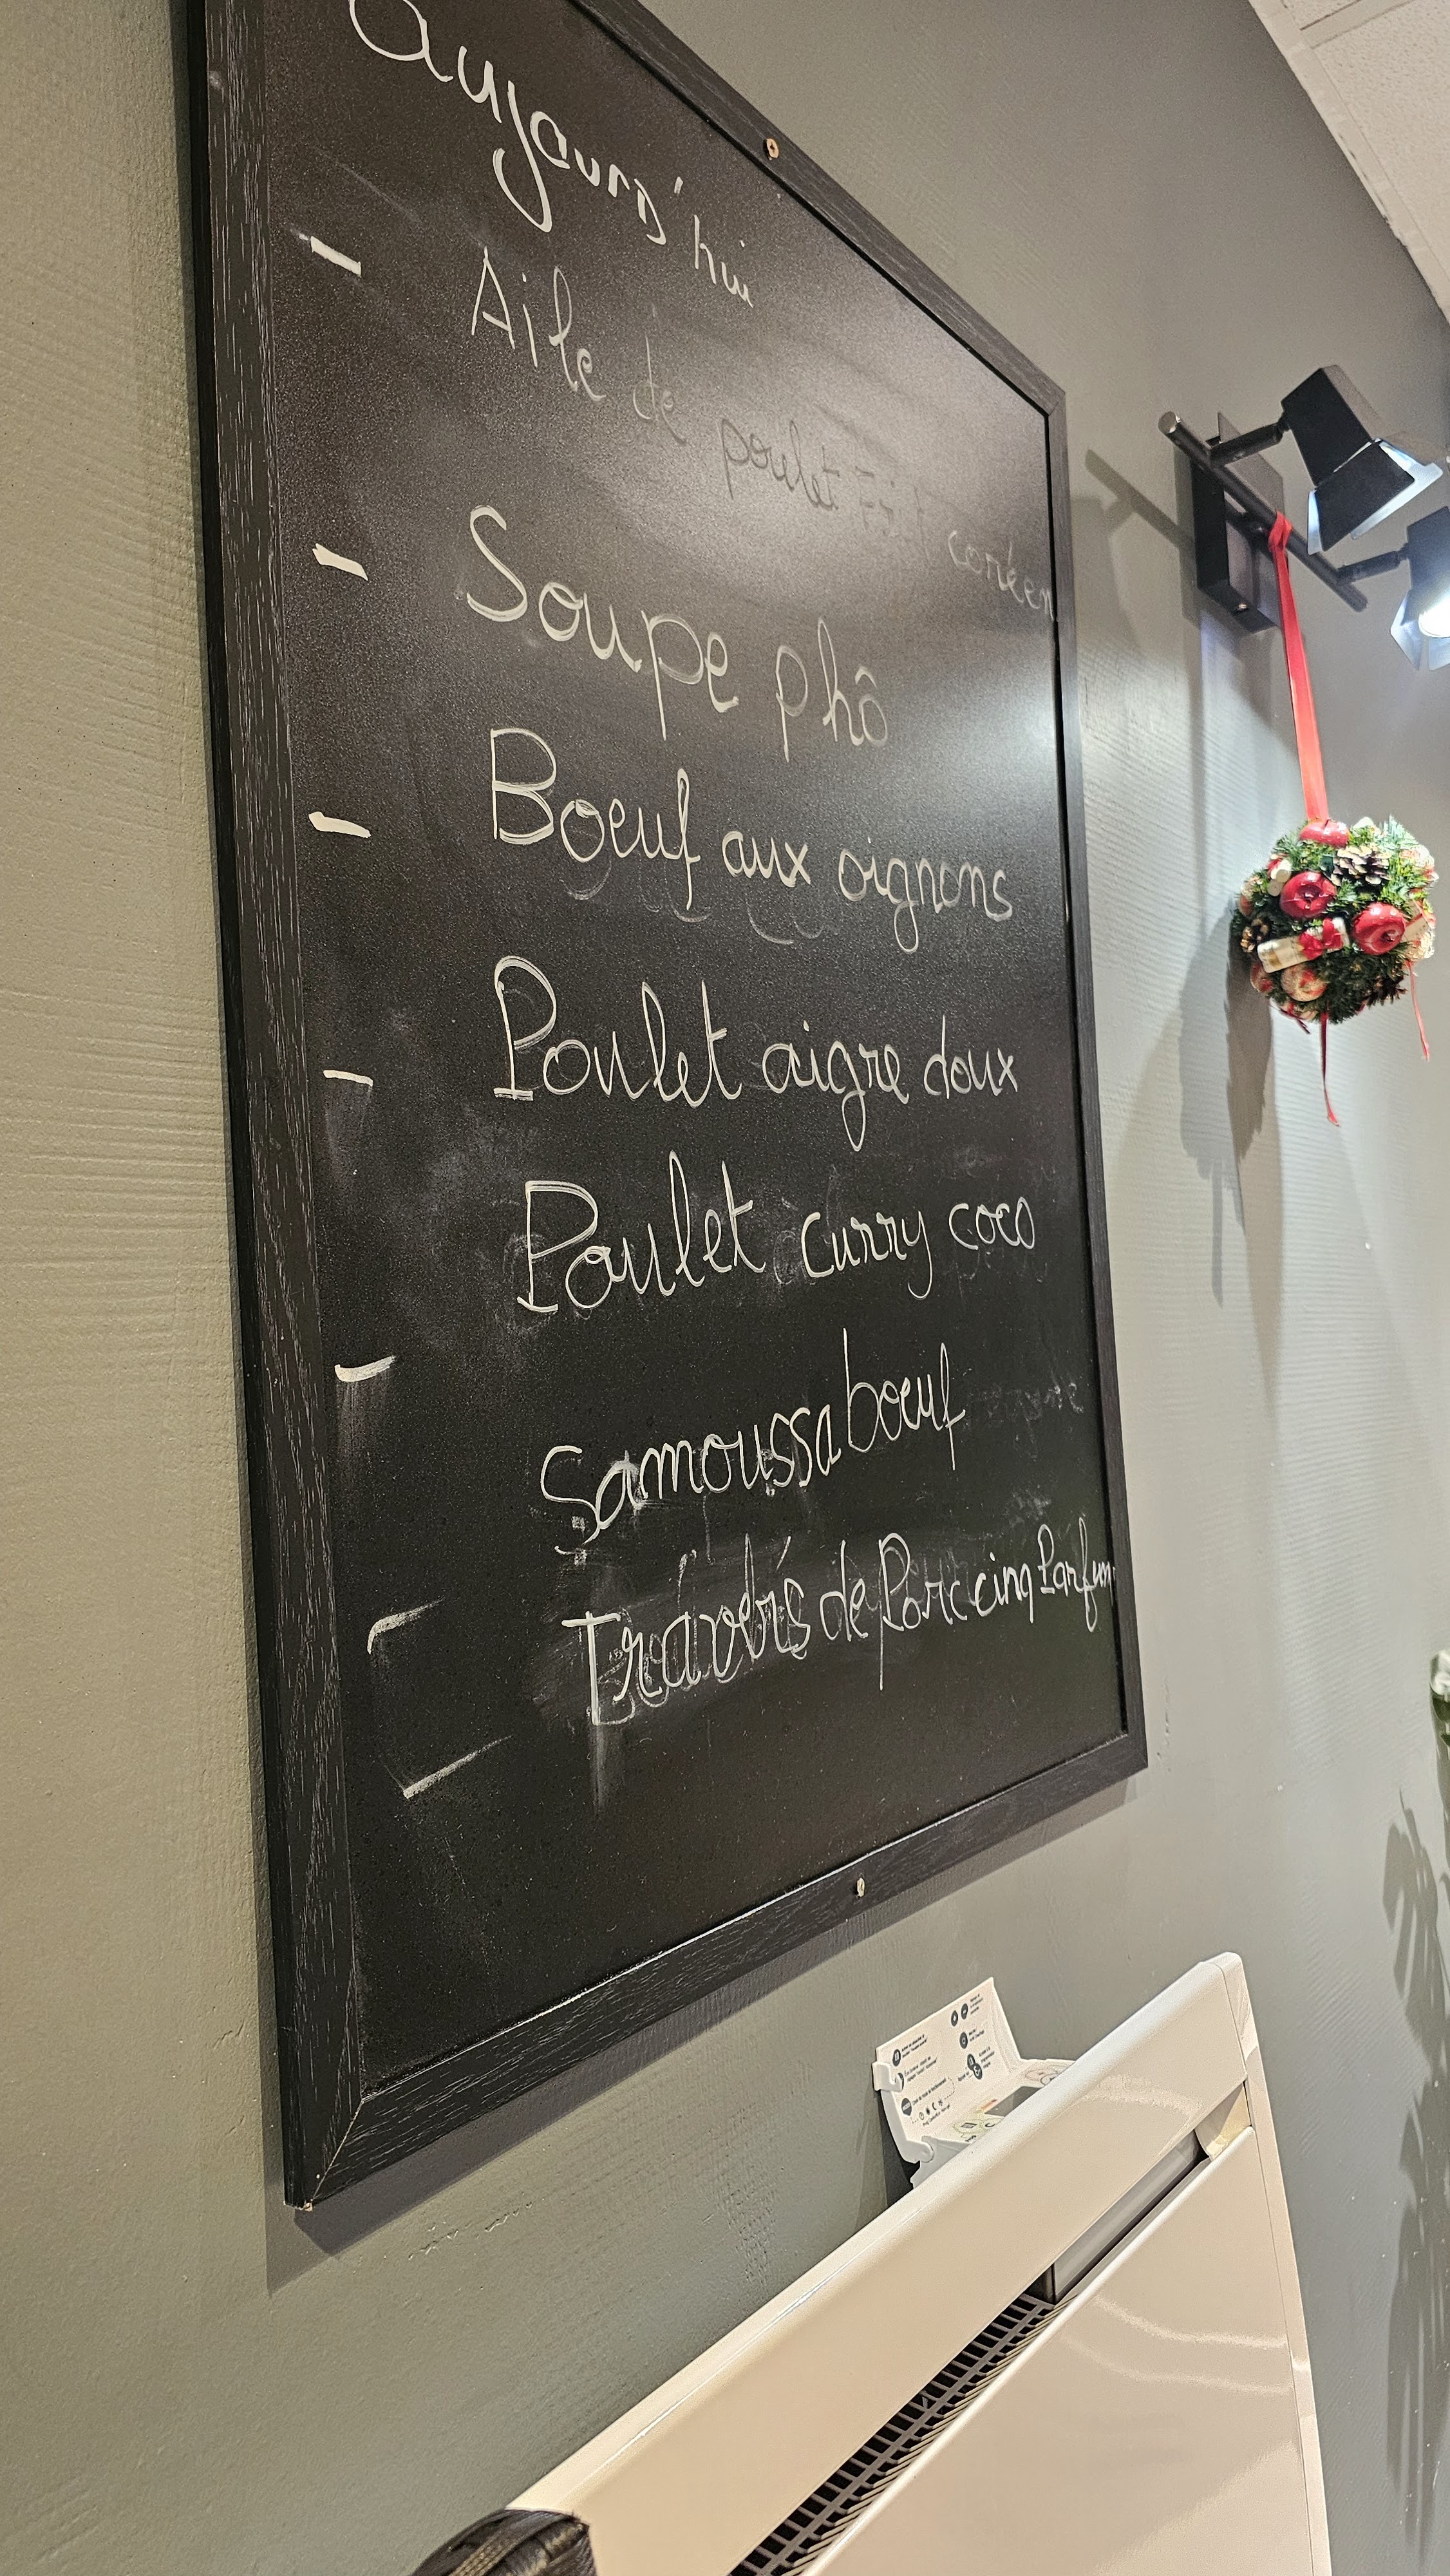 Aujourd'hui
- Aile de poulet Frit coréen
- Soupe phô
- Boeuf aux oignons
- Poulet aigre doux
- Poulet curry coco
- Samoussa boeuf
- Travers de Porc cinq Parfum